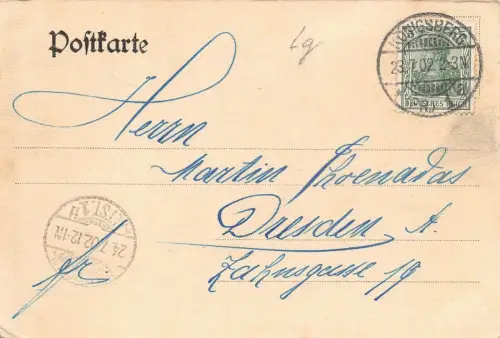 Postkarte
Lg
KÖNIGSBERG
23.7.02. 2-3N.
DEUTSCHES REICH
Herrn
Martin Phoenadas
Dresden A.
Zahnsgasse 19
fr.
24.7.02.12-1N.